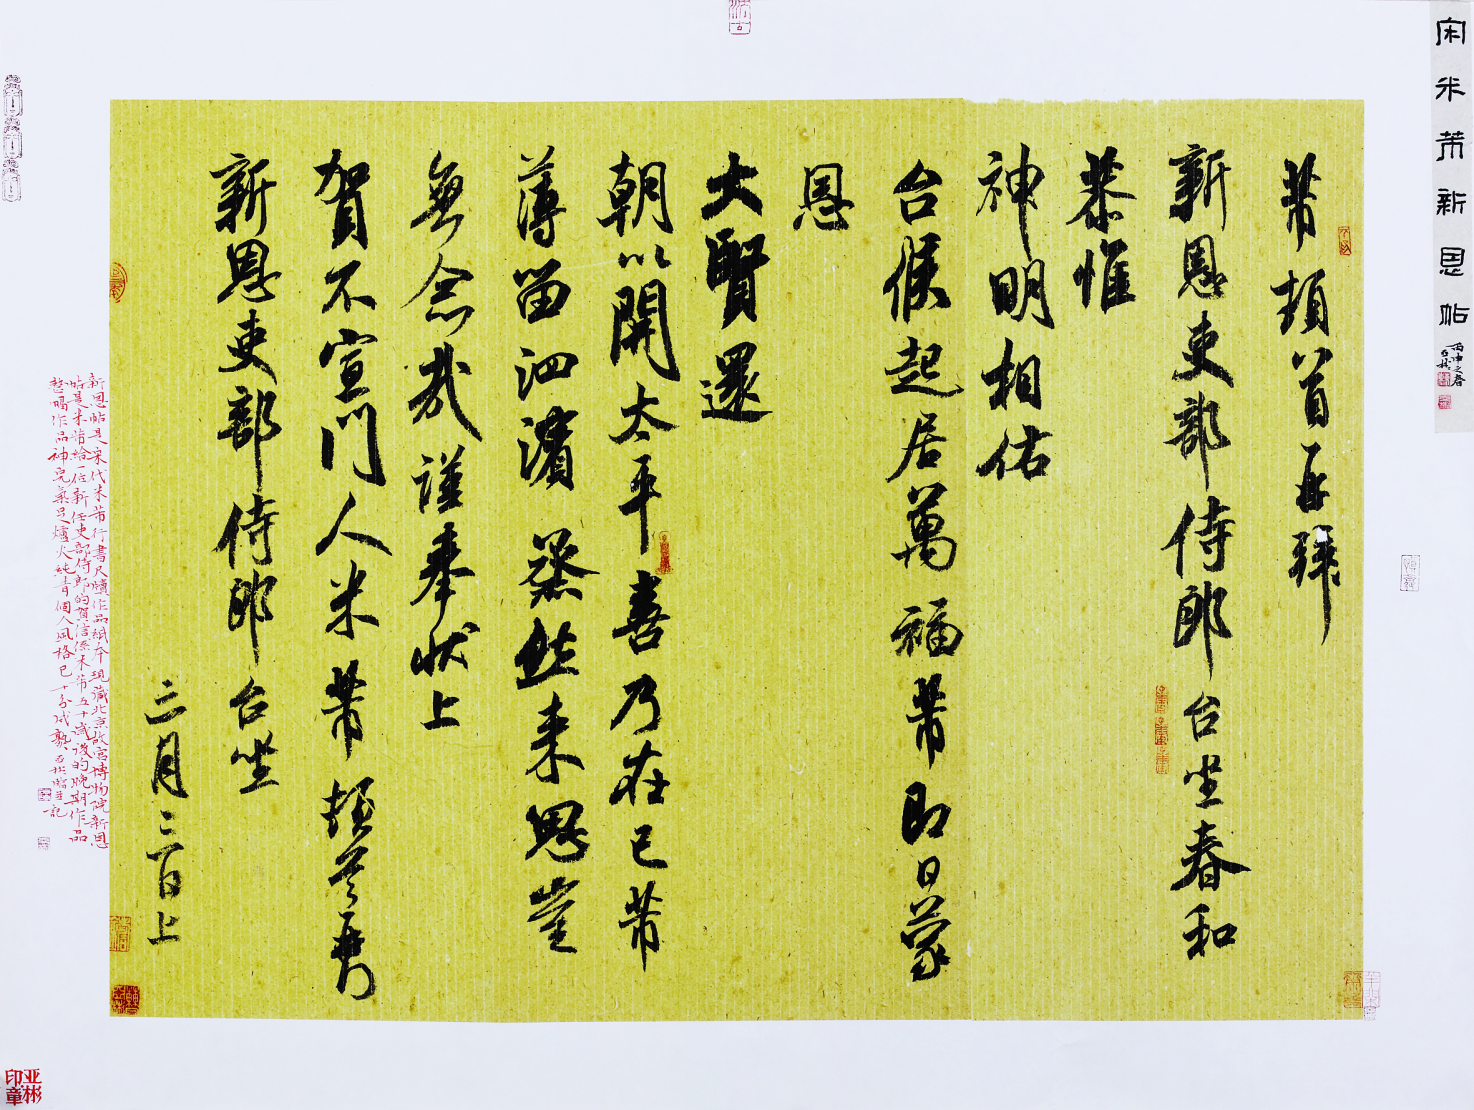 宋米芾新恩帖
丙申之春
芾頓首再拜
新恩吏部侍郎台坐春和
恭惟
神明相佑
台候起居萬福芾即日蒙
恩
大賢還
朝以開太平喜乃在已芾
薄留泗濱蒸然来思豈
無念哉謹奉状上
賀不宣門人米芾頓首再拜
新恩吏部侍郎台坐
三月三日上
新恩帖是宋代米芾行書尺牘作品紙本現藏北京故宮博物院新恩
帖是米芾給一位新任吏部侍郎的賀信係米芾五十歲後的晚期作品
整幅作品神完氣足爐火純青個人風格已十分成熟
亚彬
印章